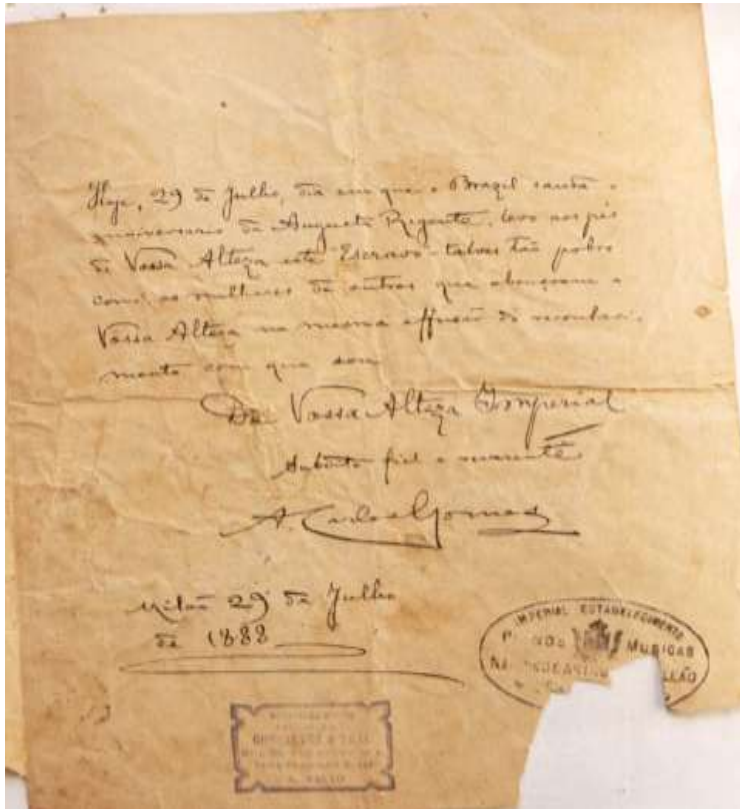 Hoje, 29 de Julho, dia em que o Brazil sauda o
anniversario da Augusta Regente, levo aos pés
de Vossa Alteza este Escravo, talvez tão pobre
como os milhares de outros que abençoam a
Vossa Alteza na mesma effusão de reconheci-
mento com que sou
De Vossa Alteza Imperial
Subdito fiel e reverente
A. Carlos Gomes
Milão 29 de Julho
de 1888
IMPERIAL ESTABELECIMENTO
MUSICAS